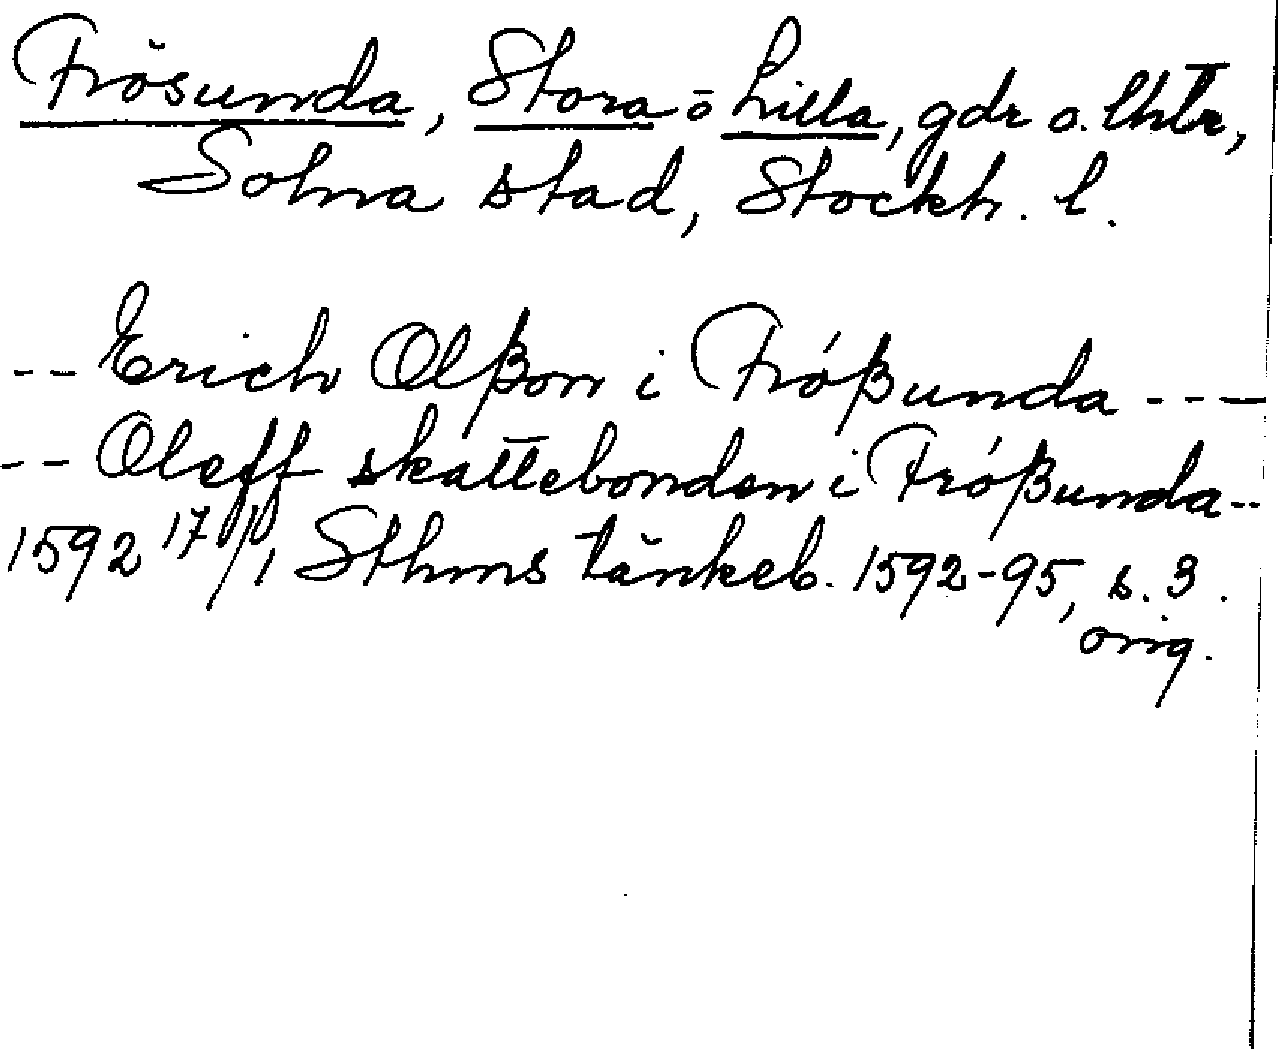 Frösunda, Stora o Lilla, gdr o. lhtr,
Solna stad, Stockh. l.
-- Erich Olßon i Fróßunda ---
-- Oleff skattebonden i Fróßunda --
1592 17/1, Sthms tänkeb. 1592-95, s. 3.
orig.